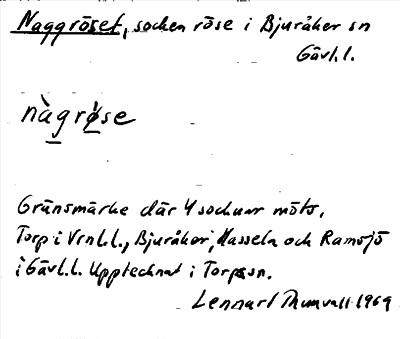 Naggröset, socken röse i Bjuråker sn
Gävl.l.
nàgrø̀se
Gränsmärke där 4 socknar möts,
Torp i Vrnl.l., Bjuråker, Hassela och Ramsjö
i Gävl.l. Upptecknat i Torpssn.
Lennart Thunvall 1969